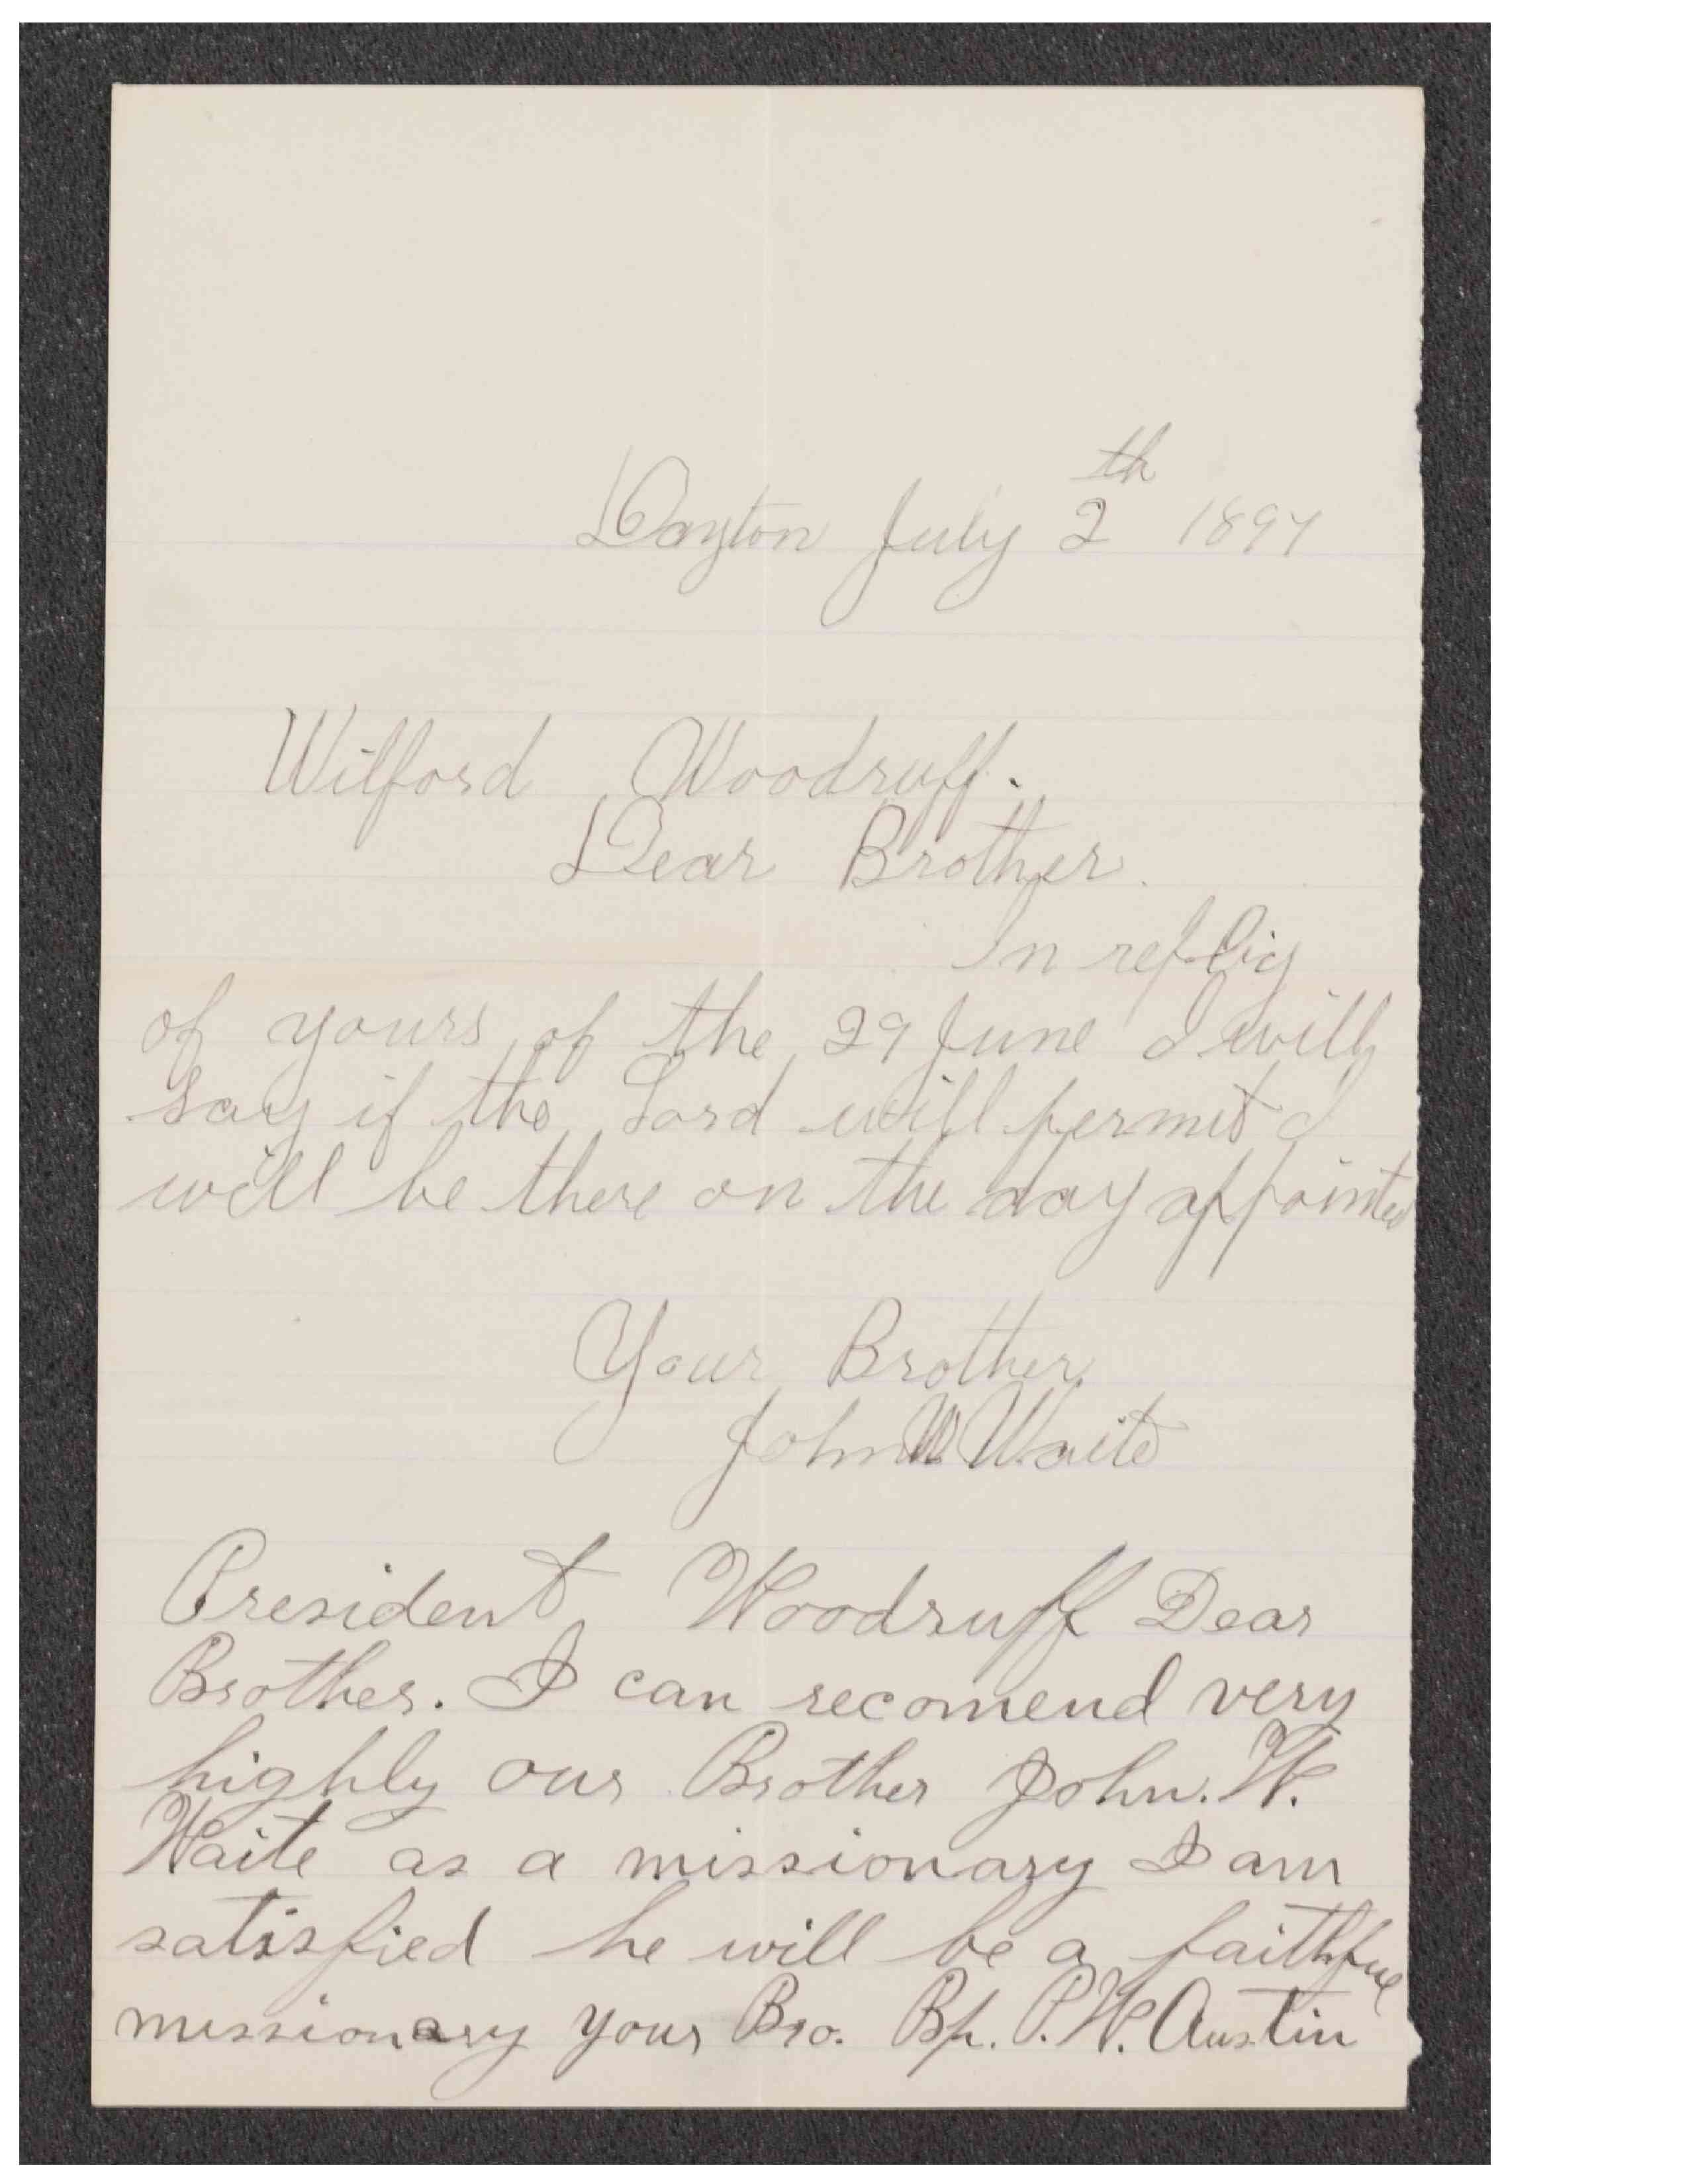 Dayton July 2th 1897
Wilford Woodruff.
Dear Brother.
In reply
of yours of the 29 June I will
say if the Lord will permit I
will be there on the day appointed
Your Brother
John W Waite
President Woodruff Dear
Brother. I can recomend very
highly our Brother John. W.
Waite as a missionary I am
satisfied he will be a faithful
missionary your Bro. Bp. P. W. Austin